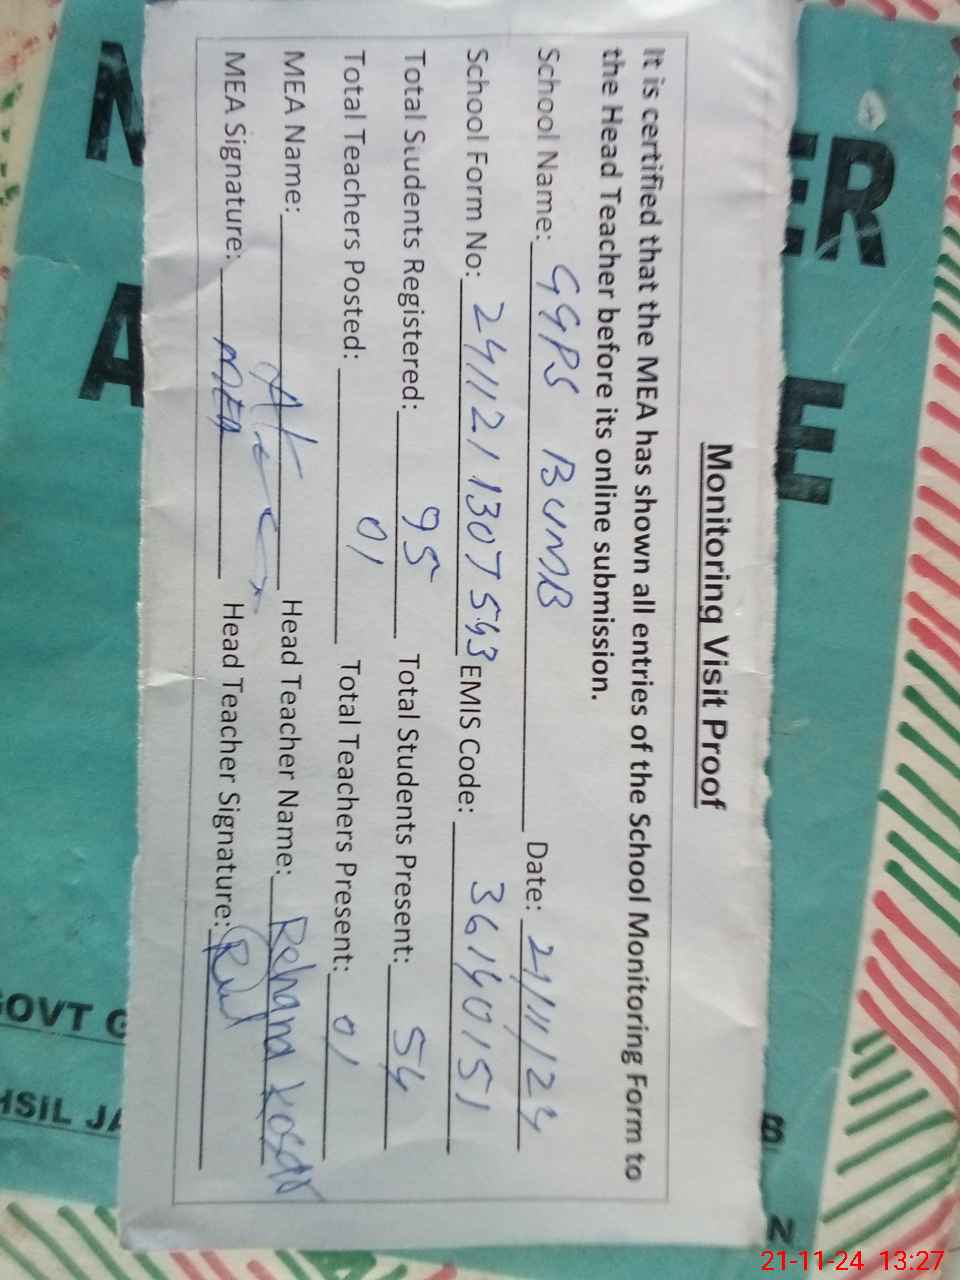 Monitoring Visit Proof
It is certified that the MEA has shown all entries of the School Monitoring Form to
the Head Teacher before its online submission.
School Name: GGPS BUMB Date: 21/11/24
School Form No: 2411211307543 EMIS Code: 36140151
Total Students Registered: 95 Total Students Present: 54
Total Teachers Posted: 01 Total Teachers Present: 01
MEA Name: Head Teacher Name: Rehana
MEA Signature: Head Teacher Signature:
21-11-24 13:27